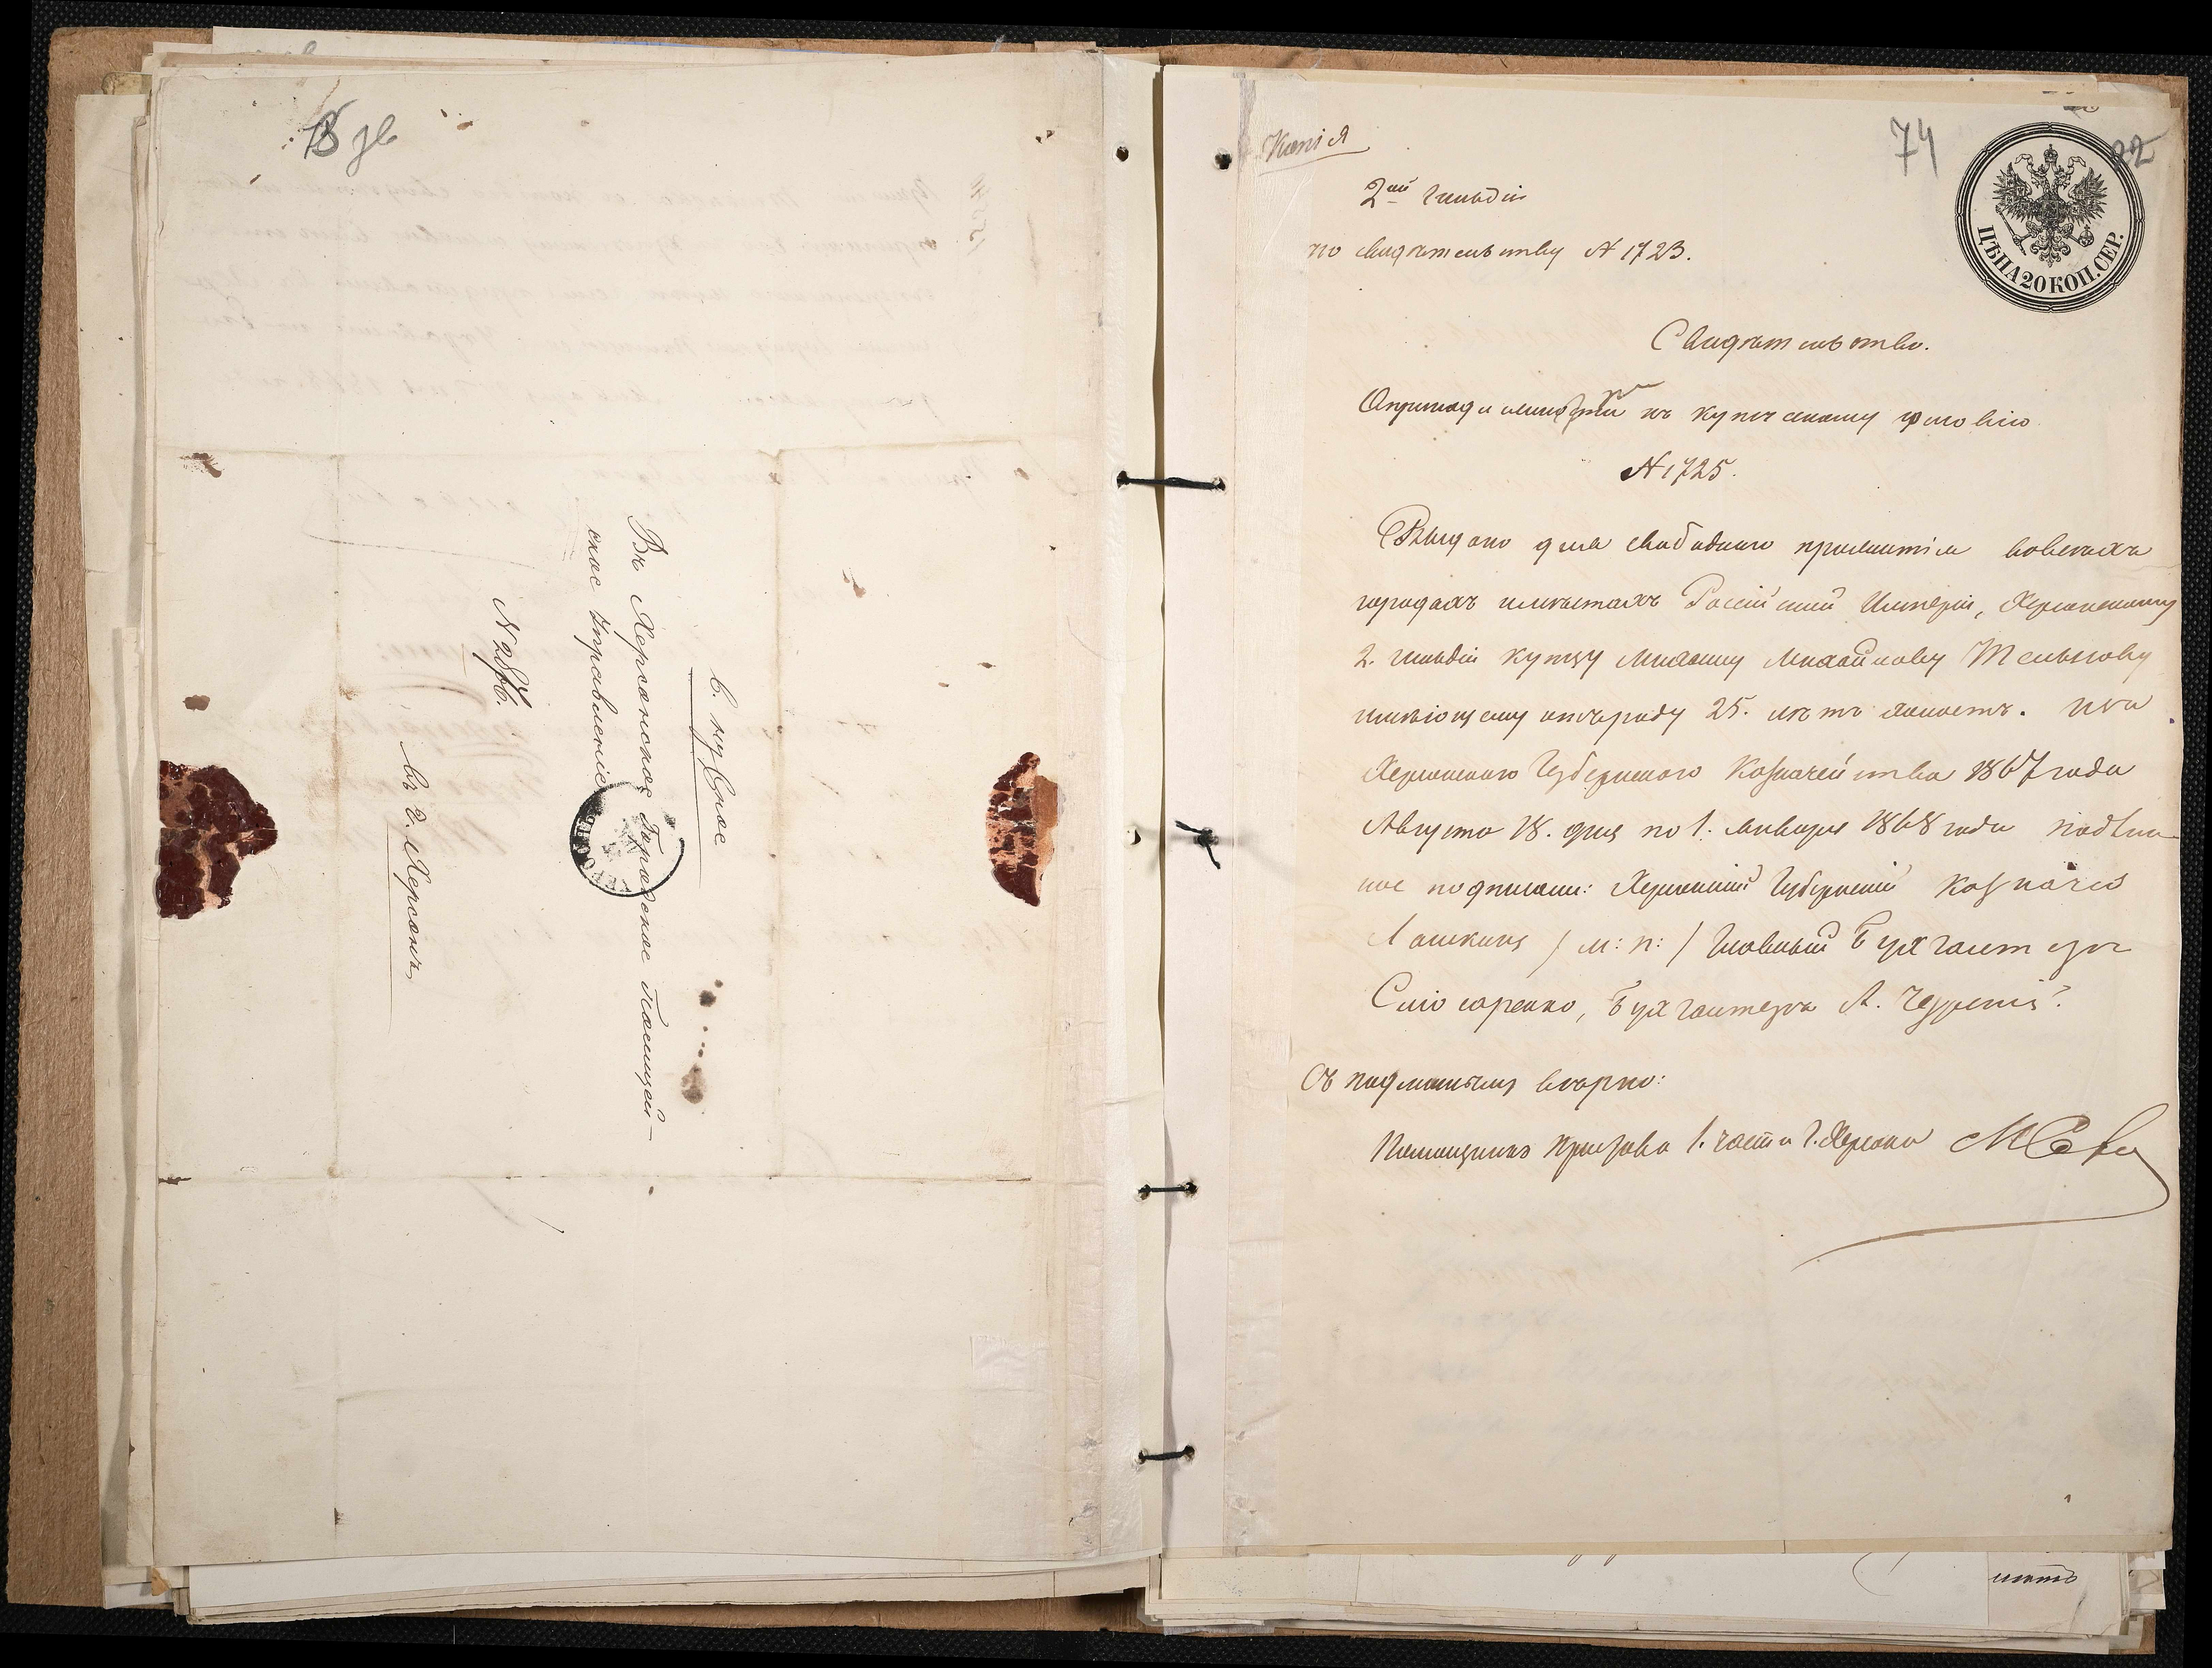 73 об
С. нужное
Въ Херсонское Городское Полицей-
ское Управленіе
N 2876.
въ г. Херсонъ,
Копія
74
22
ЦѢНА 20 КОП. СЕР.
2ой гильдіи
по свидѣтельству N 1723.
Свидѣтельство.
О принадлежности къ купеческому сословію
N 1725.
Выдано для свободнаго прожитія во всѣхъ
городахъ и мѣстахъ Россійской Имперіи, Херсонскому
2. гильдіи купцу Михаилу Михайлову Тельнову
имѣющему отъ роду 25. лѣтъ холостъ. изъ
Херсонскаго Губернскаго Казначейства 1867 года
Августа 18. дня по 1. Января 1868 года подлин-
ное подписали: Херсонскій Губернскій Казначей
Лашкинъ /м: п:/ Главный Бухгалтеръ
Слюсаренко, Бухгалтеръ А.
Съ подлиннымъ вѣрно:
Помощникъ Пристава 1. части г. Херсона